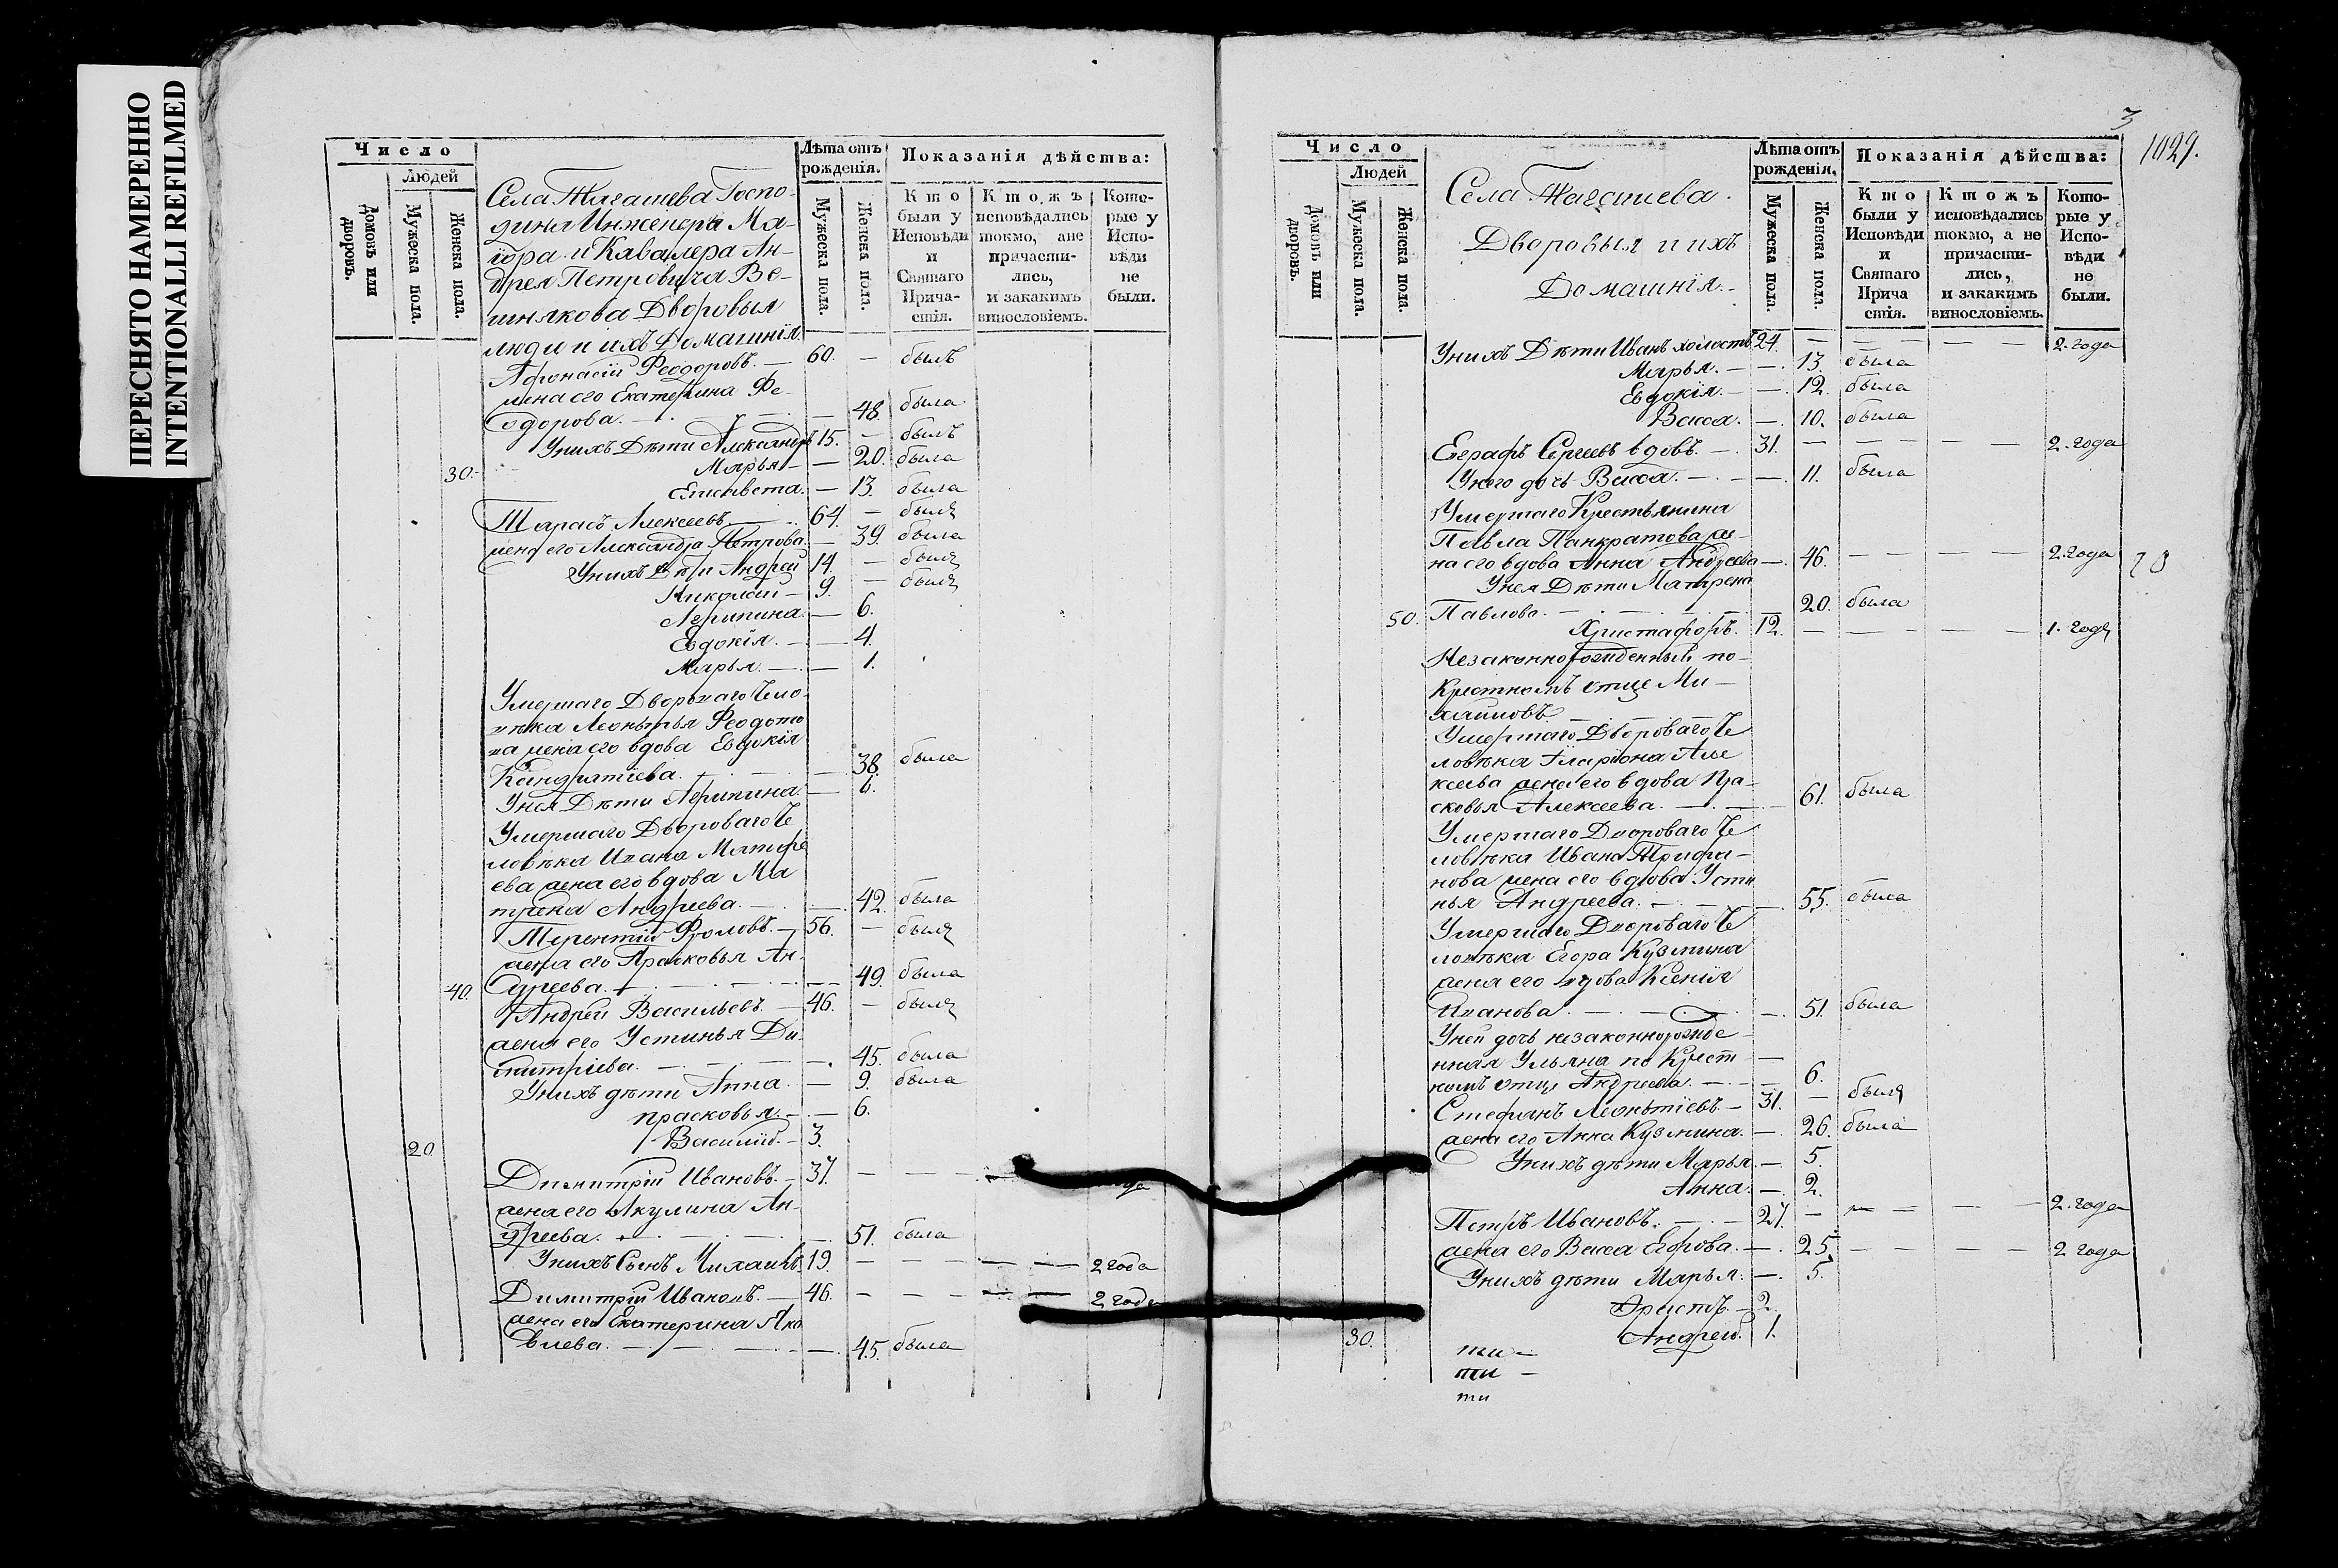 ПЕРЕСНЯТО НАМЕРЕННО
INTENTIONALLI REFILMED
Число
Людей
Домовъ или дворовъ.
Мужеска пола.
Женска пола.
Села Тагашева Госпо-
дина Инженера Ма-
іора и Кавалера Ан-
дрея Петровича Ве-
шнякова Дворовыя
люди и ихъ Домашнія
Лѣта отъ рожденія.
Мужеска пола.
Женска пола.
Показанія дѣйства:
Кто были у Исповѣди и Святаго Прича-стія.
Ктожъ исповѣдались токмо, а не причасти-лись, и закакимъ винословіемъ.
Кото-рые у Испо-вѣди не были.
Афонасій Феодоровъ. — 60. — былъ
жена его Екатерина Фе-
одорова. — 48. была
Унихъ Дѣти Александръ 15. — былъ
30. Марья — — 20. была
Елисавета. — 13. была
Тарасъ Алексеевъ 64. — былъ
жена его Александра Петрова — 39. была
Унихъ Дѣти Андрей 14. — былъ
Николай — 9. — былъ
Агрипина. — 6.
Евдокія. — 4.
Марья. — 1.
Умершаго Дворонаго Чело-
вѣка Леонтья Феодото
ва жена его вдова Евдокія
Кандратіева. — 38. была
Унея Дѣти Агрипина. — 6.
Умершаго Двороваго Че
ловѣка Ивана Матфе
ева жена его вдова Ма
трена Андреева. — 42. была
Терентій Фроловъ. — 56. — былъ
жена его Прасковья Ан-
40. дреева. — 49. была
Андрей Васильевъ. — 46. — былъ
жена его Устинья Ди-
митріева. — 45. была
Унихъ дѣти Анна. — 9. была
прасковья. — 6.
20 Василій. — 3.
Димитрій Ивановъ. — 37. — — —
жена его Акулина Ан-
дреева. — 51. была
Унихъ Сынъ Михаилъ. 19. — — — — — 2 года
Димитрій Ивановъ. — 46. — — — — — 2 года
жена его Екатерина Яко
влева. — 45. была
3
1029.
Число
Людей
Домовъ или дворовъ.
Мужеска пола.
Женска пола.
Села Тагашева.
Дворовыя и ихъ
Домашнія.
Лѣта отъ рожденія.
Мужеска пола.
Женска пола.
Показанія дѣйства:
Кто были у Исповѣди и Святаго Прича стія.
Ктожъ исповѣдались токмо, а не причасти-лись, и закакимъ винословіемъ.
Кото-рые у Испо-вѣди не были.
Унихъ Дѣти Иванъ холостъ 24. — — — — — 2. года
Марья. — — 13. была
Евдокія — — 12. была
Васса. — 10. была
Сергеевъ вдовъ. — 31. — — — — — 2. года
Унего дочь Васса. — — 11. была
Умершаго Крестьянина
Павла Панкратова же-
на его вдова Анна Андреева — 46. — — — — 2. года
Унея Дѣти Матрена
50. Павлова. — 20. была
Христафоръ. 12. — — — — — 1. годъ
Незаконнорожденный по-
Крестномъ отце Ми-
хайловъ
Умершаго Двороваго Че
ловѣка Иларіона Але
ксеева жена его вдова Пра-
сковья Алексеева. — 61. была
Умершаго Двороваго Че
ловѣка Ивана Трифа-
нова жена его вдова Усти
нья Андреева. — 55. была
Умершаго Двороваго Че
ловѣка Егора Кузмина
жена его вдова Ксенія
Иванова. — 51. была
Уней дочь незаконнорожде-
нная Ульяна по Крест —
номъ отце Андреева. — 6.
Стефанъ Леонтіевъ. — 31. — былъ
жена его Анна Кузмина. — 26. была
Унихъ дѣти Марья. — 5.
Анна. — 2.
Петръ Ивановъ. — 27. — — — — — 2. года
жена его Васса Егорова. — 25. — — — — 2 года
Унихъ дѣти Марья. — 5.
— 2.
30. Андрей. 1.
ти —
ти —
ти